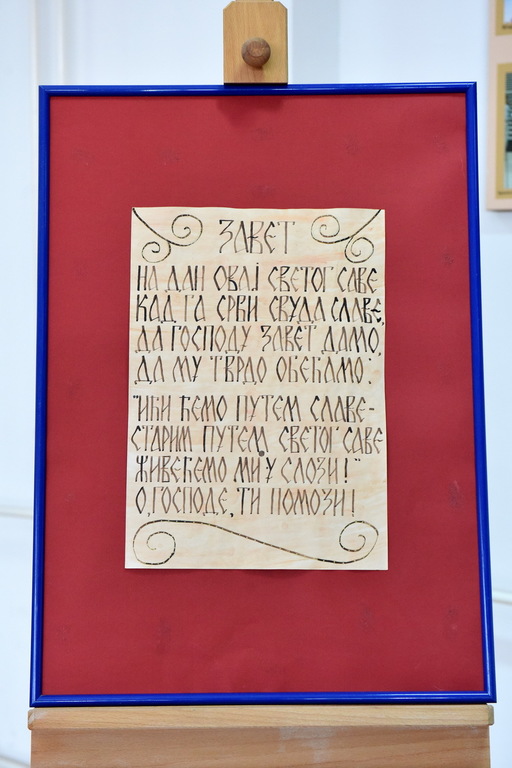 ЗАВЕТ
НА ДАН ОВАЈ СВЕТОГ САВЕ
КАД ГА СРБИ СВУДА СЛАВЕ,
ДА ГОСПОДУ ЗАВЕТ ДАМО,
ДА МУ ТВРДО ОБЕЋАМО:
"ИЋИ ЋЕМО ПУТЕМ СЛАВЕ-
СТАРИМ ПУТЕМ СВЕТОГ САВЕ
ЖИВЕЋЕМО МИ У СЛОЗИ!"
О, ГОСПОДЕ, ТИ ПОМОЗИ!